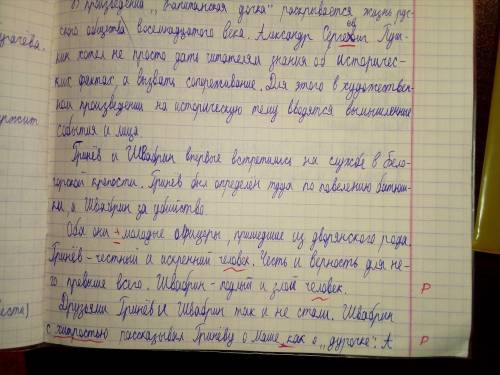 В произведении „Капитанская дочка" раскрывается жизнь рус-
ского общества восемнадцатого века. Александр Сергеевич Пуш-
кин хотел не просто дать читателям знания об историчес-
ких фактах, а вызвать сопереживание. Для этого в художествен-
ном произведении на историческую тему вводятся вымышленные
события и лица.
Гринёв и Швабрин впервые встретились на службе в Бело-
горской крепости. Гринёв был определён туда по повелению батюш-
ки, а Швабрин за убийство.
Оба они – молодые офицеры, пришедшие из дворянского рода.
Гринёв – честный и искренний человек. Честь и верность для не-
го превыше всего. Швабрин – подлый и злой человек. Р
Друзьями Гринёв и Швабрин так и не стали. Швабрин
с хитростью рассказывал Гриневу о Маше, как о „дурочке". А Р